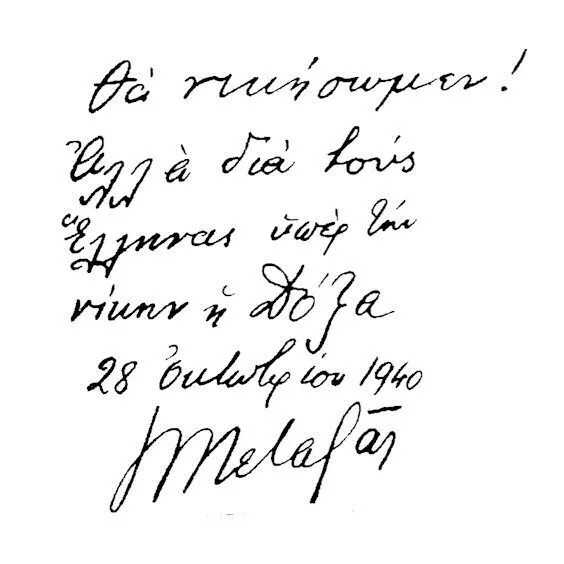 Θὰ νικήσωμεν!
Ἀλλὰ διὰ τοὺς
Ἕλληνας ὑπὲρ τὴν
νίκην ἡ Δόξα
28 Ὀκτωβρίου 1940
Ι Μεταξᾶς